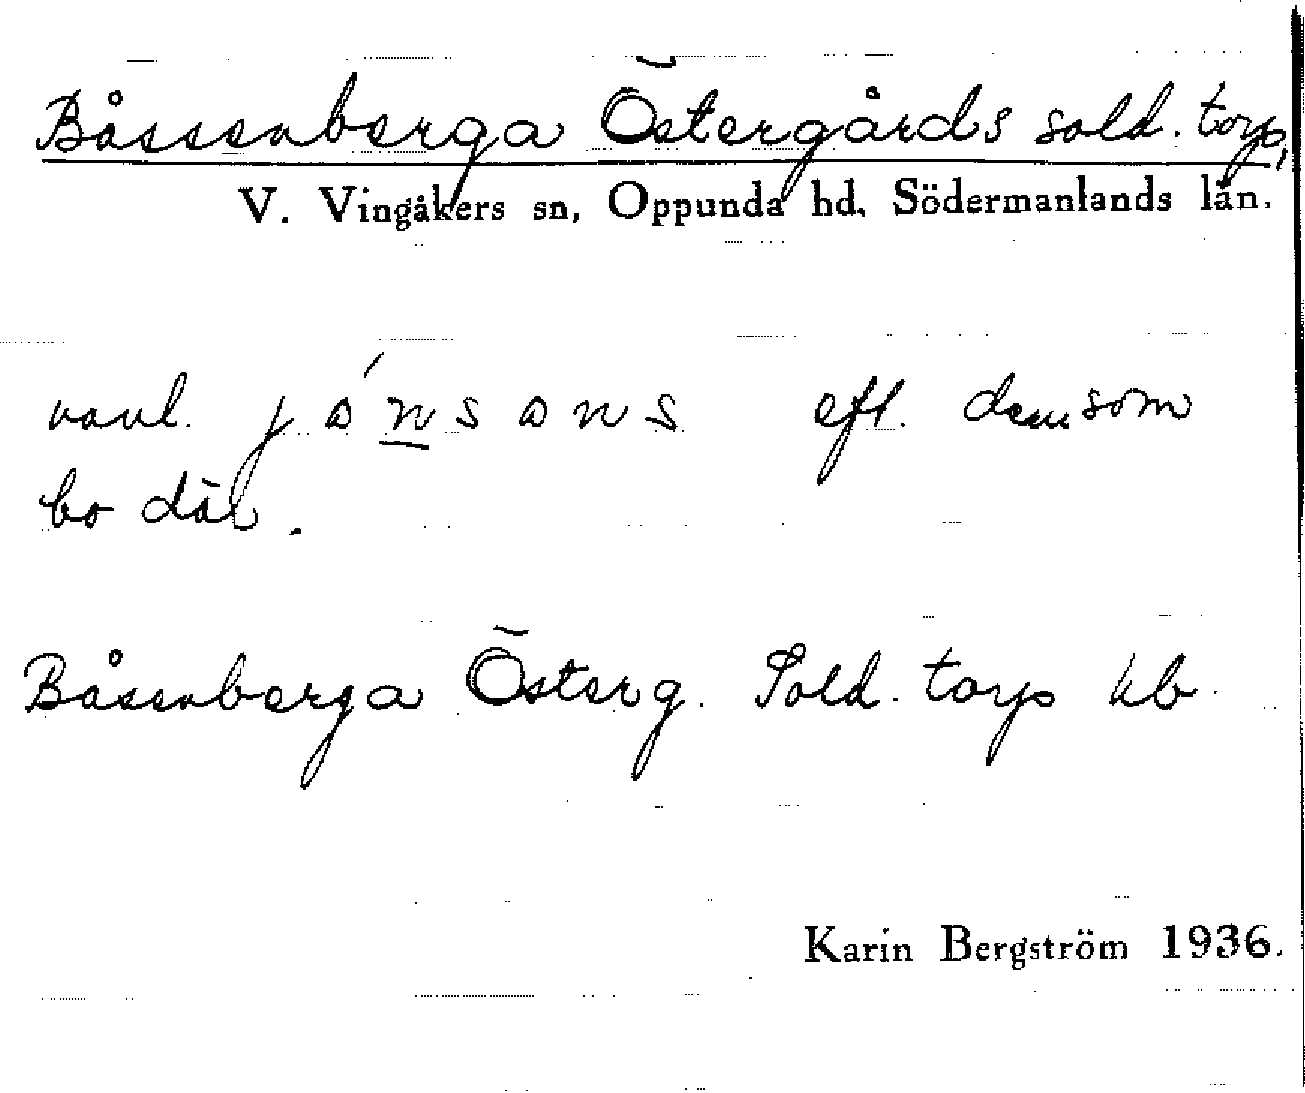 Båssenberga Östergårds sold. torp,
V. Vingåkers sn, Oppunda hd, Södermanlands län.
vanl. jánsans eft. dem som
bo där.
Båsenberga Österg. Sold. torp kb
Karin Bergström 1936.